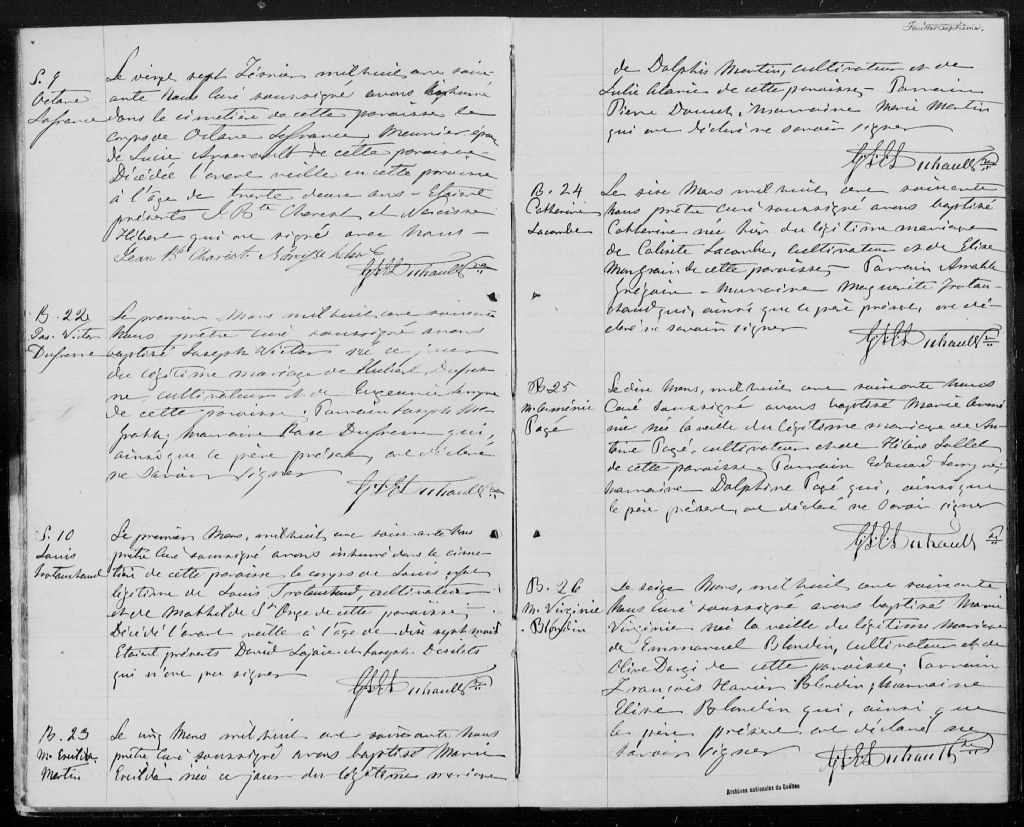 S. 9
Octave
Lafrance
Le vingt sept Février mil huit cent soix-
ante Nous curé soussigné avons inhumé
dans le cimetière de cette paroisse le
corps de Octave Lafrance, Meunier époux
de Lucie Arsenault de cette paroisse.
Décédé l'avant veille en cette paroisse
à l'âge de trente deux ans - Etaient
présents J. Bte Charest et Narcisse
Hébert qui ont signé avec nous -
Jean Bte Charest Narcisse Hébert
B. 22
Jos. Victor
Dufresne
Le premier Mars mil huit cent soixante
Nous prêtre curé soussigné avons
baptisé Joseph Victor né ce jour
du légitime mariage de Hubert Dufres-
ne, cultivateur et de Eugeunie
de cette paroisse. Parrain Joseph Mc
Grath, Marraine Rose Dufresne qui,
ainsi que le père présent, ont déclaré
ne savoir signer
S. 10
Louis
Trotanchaud
Le premier Mars, mil huit cent soixante Nous
prêtre curé soussigné avons inhumé dans le cime-
tière de cette paroisse le corps de Louis enfant
légitime de Louis Trotanchaud, cultivateur
et de Mathilde St Onge de cette paroisse.
Décédé l'avant veille à l'âge de dix sept mois
Etaient présents David Lajoie et Joseph Desilets
qui n'ont pu signer
B. 23
M. Exilda
Martin
Le cinq Mars mil huit cent soixante Nous
prêtre curé soussigné avons baptisé Marie
Exilda née ce jour du légitime mariage
Feuillet septième.
de Dolphis Martin, cultivateur et de
Julie Alarie de cette paroisse - Parrain
Pierre Doucet, marraine Marie Martin
qui ont déclaré ne savoir signer
B. 24
Catherine
Lacombe
Le six Mars mil huit cent soixante
Nous prêtre curé soussigné avons baptisé
Catherine née hier du légitime mariage
de Calixte Lacombe, cultivateur et de Elise
Mongrain de cette paroisse - Parrain Amable
Grégoire - marraine Marguerite Trotan-
chaud qui, ainsi que le père présent, ont dé-
claré ne savoir signer
B. 25
M. Cerménie
Pagé
Le dix Mars, mil huit cent soixante Nous
Curé soussigné avons baptisé Marie
née la veille du légitime mariage de An-
toine Pagé, cultivateur et de Hélène
de cette paroisse. Parrain Edouard
marraine Dolphine Pagé qui, ainsi que
le père présent, ont déclaré ne savoir signer
B. 26
M. Virginie
Blondin
Le seize Mars, mil huit cent soixante
Nous curé soussigné avons baptisé Marie
Virginie née la veille du légitime mariage
de Emmanuel Blondin, cultivateur et de
Olive de cette paroisse. Parrain
François Xavier Blondin, Marraine
Elisé Blondin qui, ainsi que
le père présent ont déclaré ne
savoir signer
Archives nationales du Québec